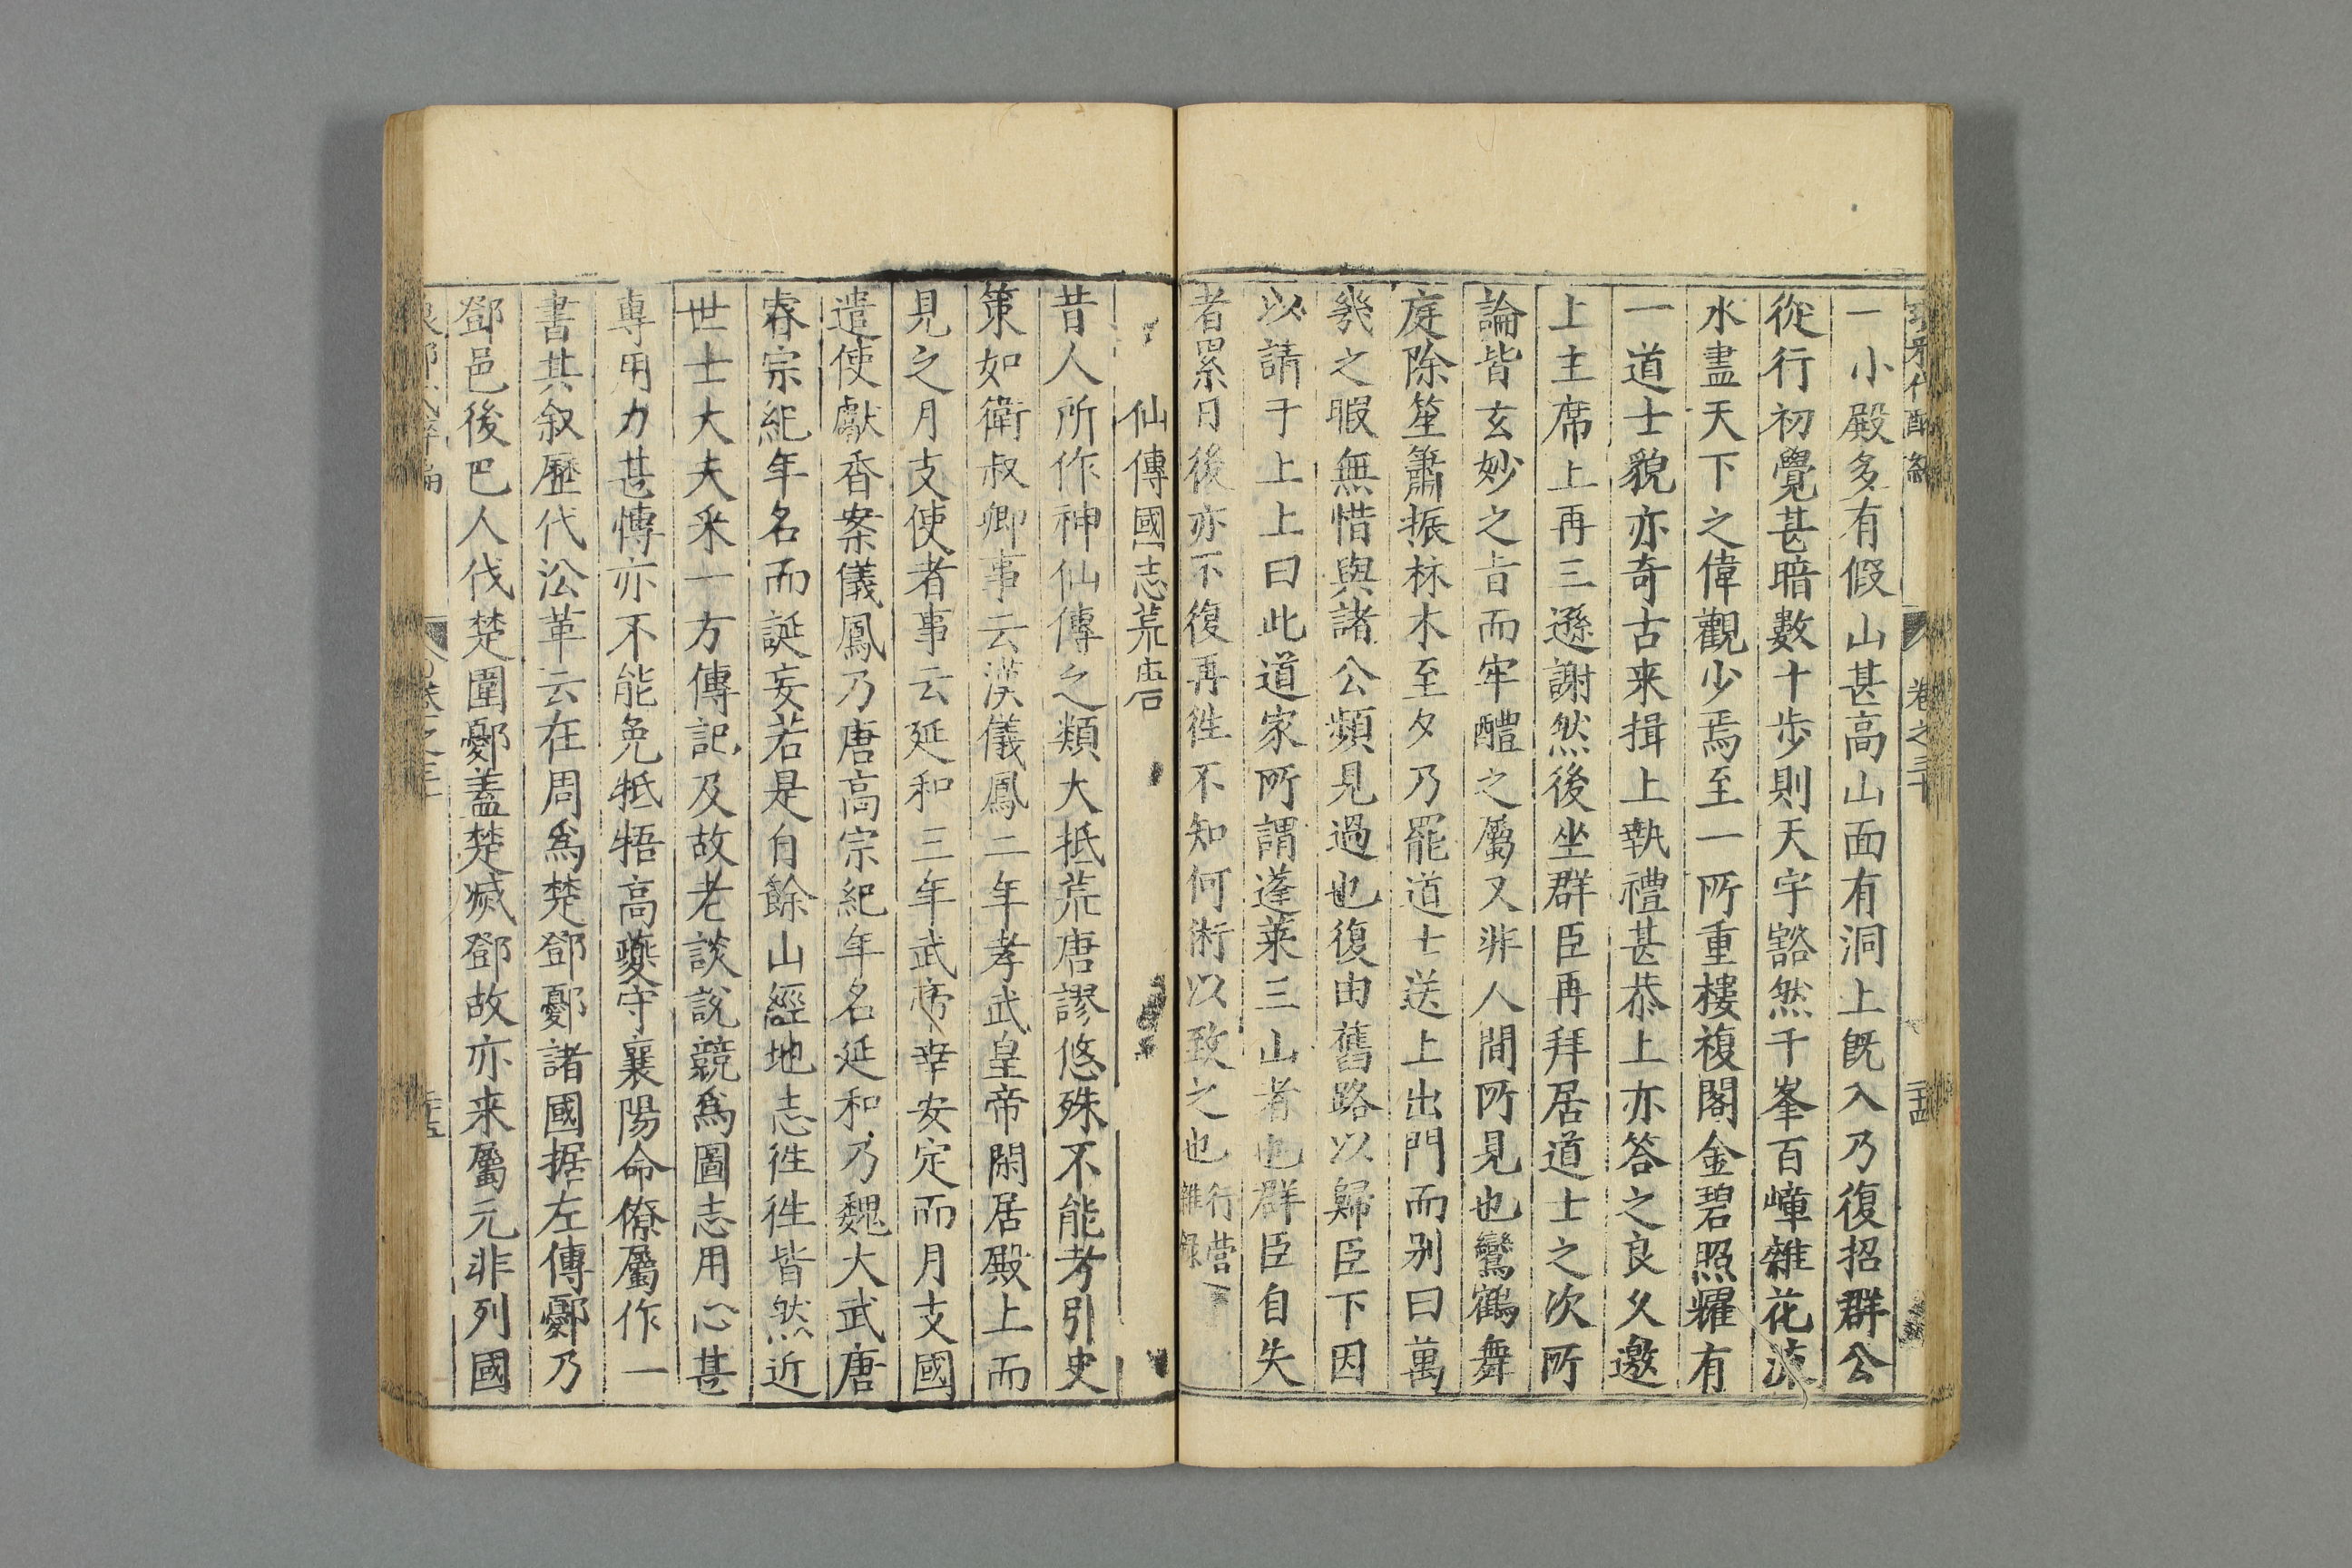 卷之三十
一小殿多有假山甚高山面有洞上既入乃復招群公
從行初覺甚暗數十步則天宇豁然千峯百嶂雜花流
水盡天下之偉觀少焉至一所重樓複閣金碧照耀有
一道士貌亦奇古来揖上執禮甚恭上亦答之良久邀
上主席上再三遜謝然後坐群臣再拜居道士之次所
論皆玄妙之旨而牢醴之屬又非人間所見也鸞鶴舞
庭除笙簫振林木至夕乃罷道士送上出門而别曰萬
幾之暇無惜與諸公頻見過也復由舊路以歸臣下因
以請于上上曰此道家所謂蓬莱三山者也群臣自失
者累日後亦不復再徃不知何術以致之也行營雜録
仙傳國志荒唐
昔人所作神仙傳之類大抵荒唐謬悠殊不能考引史
策如衛叔卿事云漢儀鳳二年孝武皇帝閑居殿上而
見之月支使者事云延和三年武帝幸安定而月支國
遣使獻香案儀鳳乃唐高宗紀年名延和乃魏大武唐
睿宗紀年名而誕妄若是自餘山經地志徃徃皆然近
世士大夫采一方傳記及故老談說競爲圖志用心甚
專用力甚慱亦不能免牴牾高夔守襄陽命僚屬作一
書其叙歷代沿革云在周爲楚鄧鄾諸國据左傳鄾乃
鄧邑後巴人伐楚圍鄾蓋楚滅鄧故亦来屬元非列國